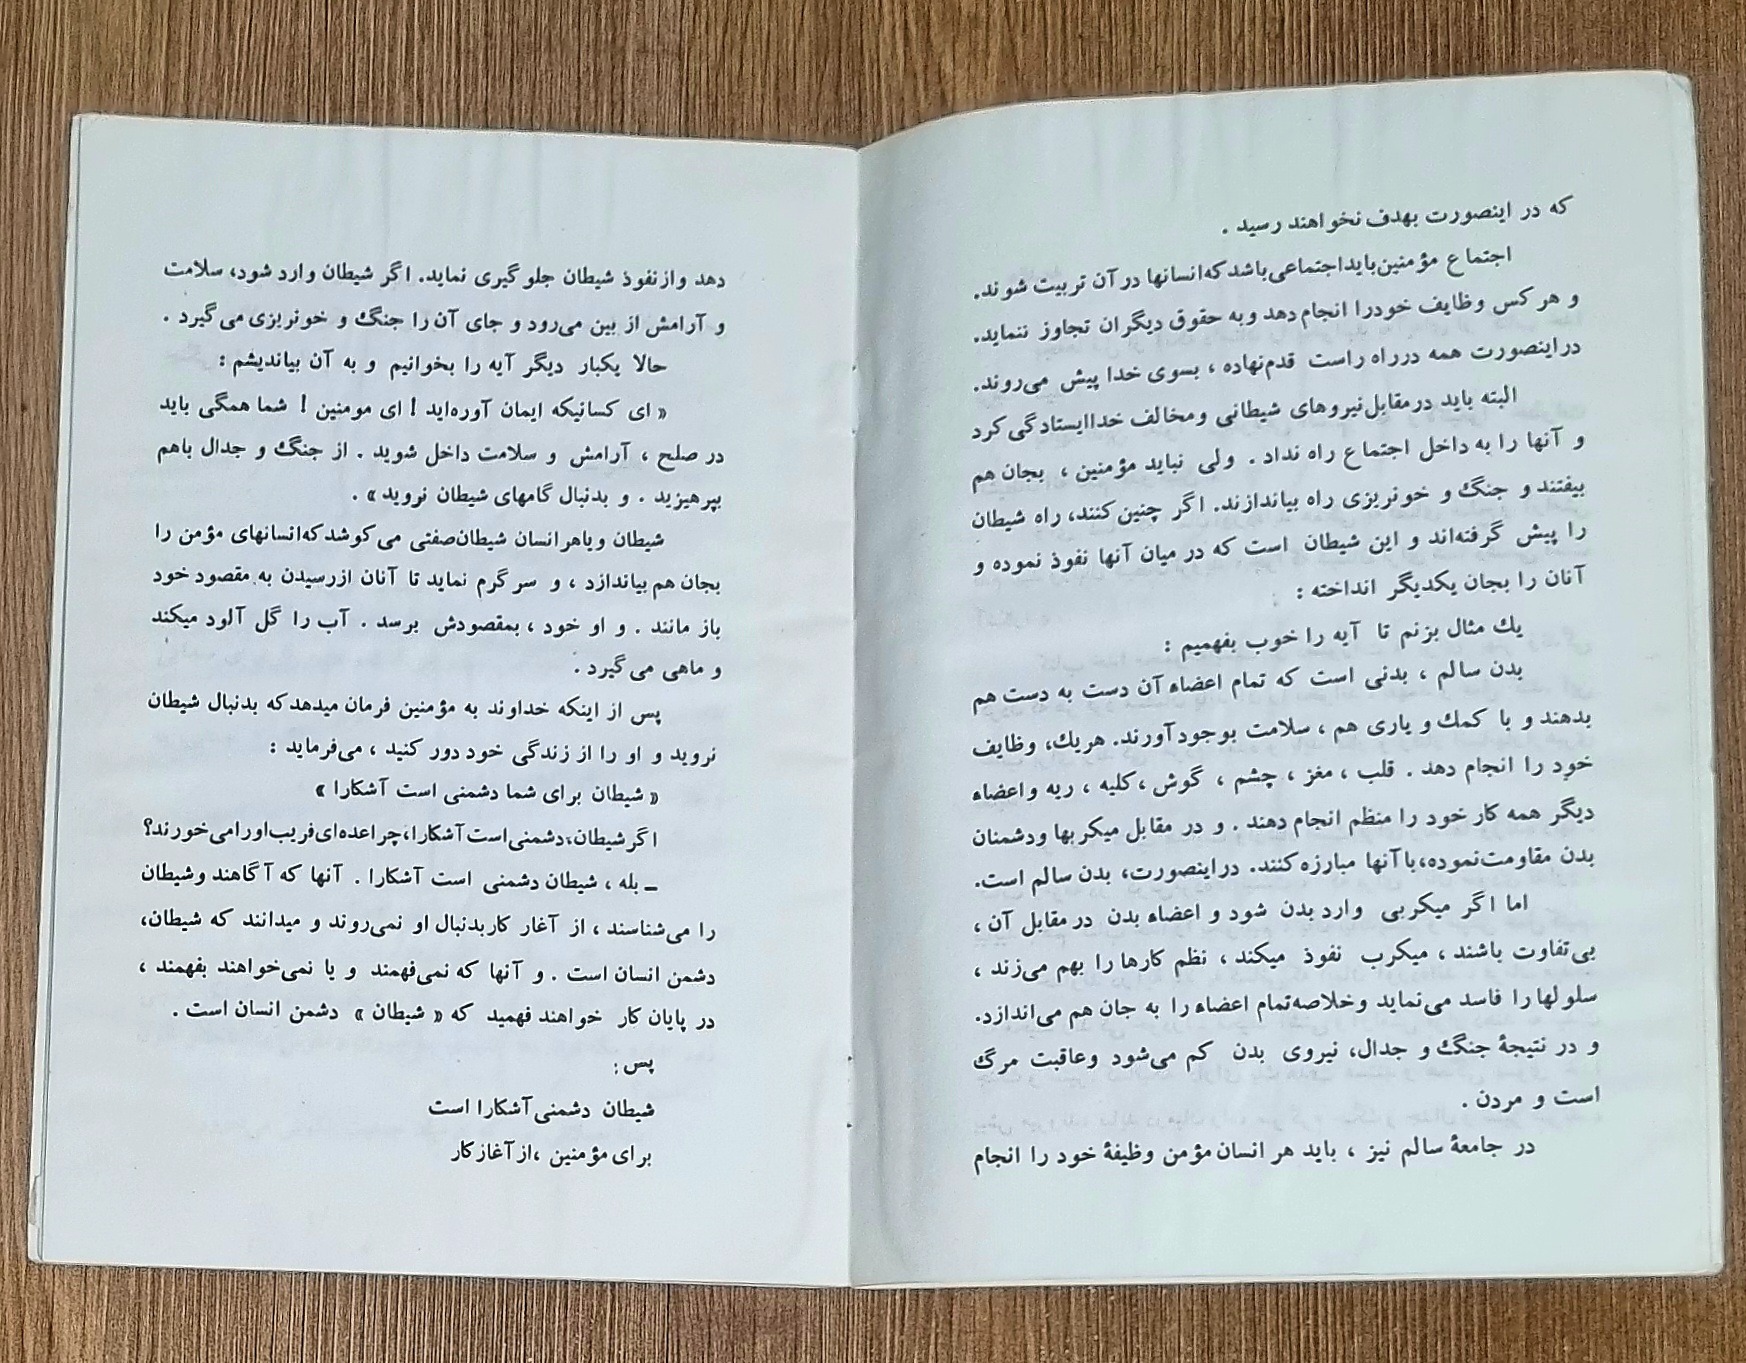 که در اینصورت بهدف نخواهند رسید .
اجتماع مؤمنین باید اجتماعی باشد که انسانها در آن تربیت شوند.
و هر کس وظایف خودرا انجام دهد و به حقوق دیگران تجاوز ننماید.
در اینصورت همه در راه راست قدم نهاده ، بسوی خدا پیش می‌روند.
البته باید در مقابل نیروهای شیطانی و مخالف خدا ایستادگی کرد
و آنها را به داخل اجتماع راه نداد . ولی نباید مؤمنین ، بجان هم
بیفتند و جنگ و خونریزی راه بیاندازند. اگر چنین کنند، راه شیطان
را پیش گرفته‌اند و این شیطان است که در میان آنها نفوذ نموده و
آنان را بجان یکدیگر انداخته :
یك مثال بزنم تا آیه را خوب بفهمیم :
بدن سالم ، بدنی است که تمام اعضاء آن دست به دست هم
بدهند و با کمك و یاری هم ، سلامت بوجود آورند. هریك، وظایف
خود را انجام دهد . قلب ، مغز ، چشم ، گوش ، کلیه ، ریه و اعضاء
دیگر همه کار خود را منظم انجام دهند . و در مقابل میکربها و دشمنان
بدن مقاومت نموده، با آنها مبارزه کنند. در اینصورت، بدن سالم است.
اما اگر میکربی وارد بدن شود و اعضاء بدن در مقابل آن ،
بی‌تفاوت باشند ، میکرب نفوذ میکند ، نظم کارها را بهم می‌زند ،
سلولها را فاسد می‌نماید و خلاصه تمام اعضاء را به جان هم می‌اندازد.
و در نتیجهٔ جنگ و جدال، نیروی بدن کم می‌شود و عاقبت مرگ
است و مردن .
در جامعهٔ سالم نیز ، باید هر انسان مؤمن وظیفهٔ خود را انجام
دهد و از نفوذ شیطان جلوگیری نماید. اگر شیطان وارد شود، سلامت
و آرامش از بین می‌رود و جای آن را جنگ و خونریزی می‌گیرد .
حالا یکبار دیگر آیه را بخوانیم و به آن بیاندیشم :
« ای کسانیکه ایمان آورده‌اید ! ای مومنین ! شما همگی باید
در صلح ، آرامش و سلامت داخل شوید . از جنگ و جدال باهم
بپرهیزید . و بدنبال گامهای شیطان نروید » .
شیطان و یا هر انسان شیطان‌صفتی می‌کوشد که انسانهای مؤمن را
بجان هم بیاندازد ، و سرگرم نماید تا آنان از رسیدن به مقصود خود
باز مانند . و او خود ، بمقصودش برسد . آب را گل آلود میکند
و ماهی می‌گیرد .
پس از اینکه خداوند به مؤمنین فرمان میدهد که بدنبال شیطان
نروید و او را از زندگی خود دور کنید ، می‌فرماید :
« شیطان برای شما دشمنی است آشکارا »
اگر شیطان، دشمنی است آشکارا، چرا عده‌ای فریب او را می‌خورند؟
ـ بله ، شیطان دشمنی است آشکارا . آنها که آگاهند و شیطان
را می‌شناسند ، از آغار کار بدنبال او نمی‌روند و میدانند که شیطان،
دشمن انسان است . و آنها که نمی‌فهمند و یا نمی‌خواهند بفهمند ،
در پایان کار خواهند فهمید که « شیطان » دشمن انسان است .
پس :
شیطان دشمنی آشکارا است
برای مؤمنین ، از آغاز کار